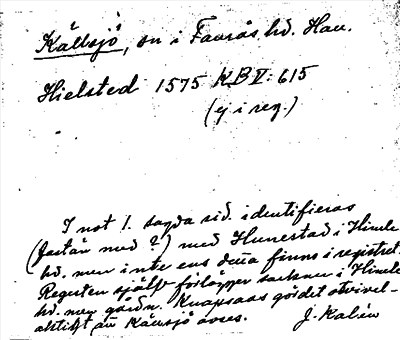 Källsjö, sn i Faurås hd. Han.
Hielsted 1575 KB V: 615
(ej i reg.)
I not 1. sagda sid. identifieras
(fastän med ?) med Hunestad i Himle
hd. men inte ens detta finns i registret.
Registen själv förlägger saken i Himle
hd. men gården Knapsaas gördet otvivel-
aktigt att Källsjö avses. J. Kalén